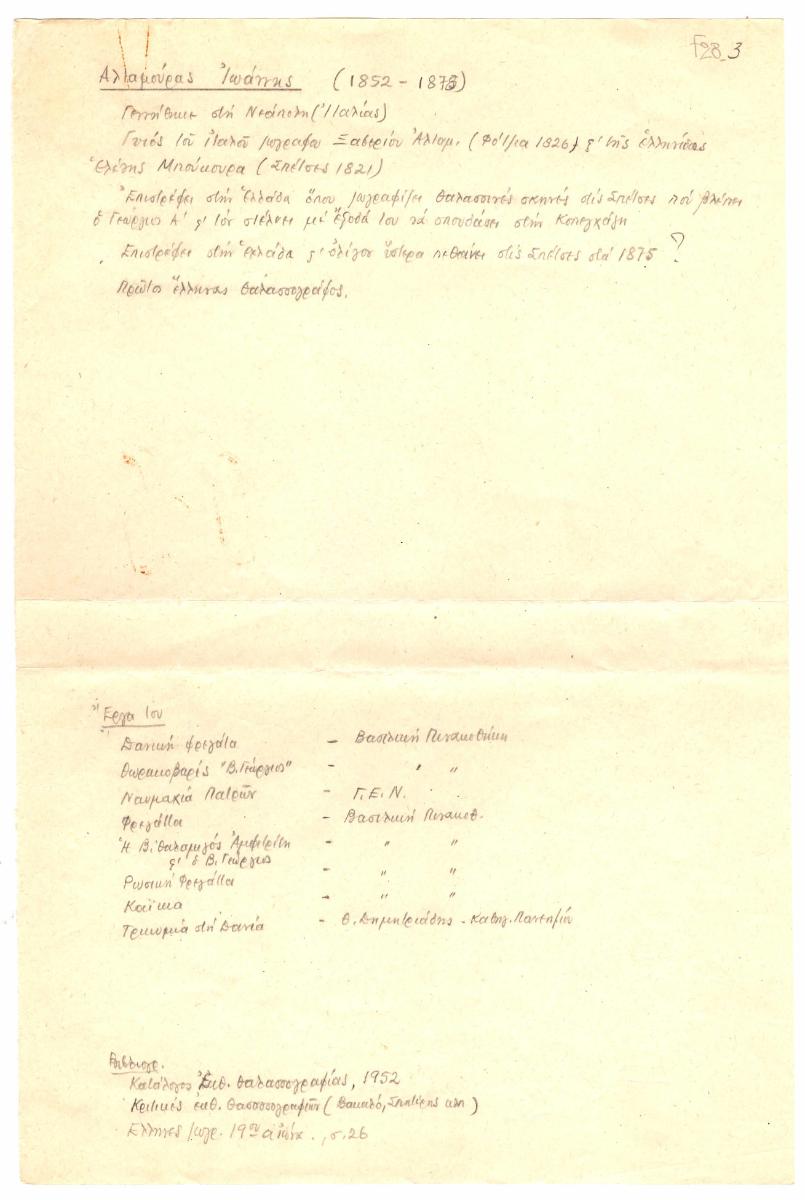 F28_3
Αλταμούρας Ἰωάννης (1852 - 1878)
Γεννήθηκε στή Νεάπολη (Ἰταλίας)
Γυιός τοῦ Ἰταλοῦ ζωγράφου Ξαβερίου Ἀλταμ. (Φότζια 1826) ϛ' τῆς ἑλληνίδας
Ἑλένης Μπούκουρα (Σπέτσες 1821)
Ἐπιστρέφει στήν Ἑλλάδα ὅπου ζωγραφίζει θαλασσινές σκηνές στίς Σπέτσες πού βλέπει
ὁ Γεώργιος Α' ϛ' τόν στέλνει μέ ἔξοδά του νά σπουδάσει στήν Κοπεγχάγη
Ἐπιστρέφει στήν Ἑλλάδα ϛ' ὀλίγον ὕστερα πεθαίνει στίς Σπέτσες στά 1875 ?
Πρῶτος ἕλληνας θαλασσογράφος.
Ἔργα του
Δανική φρεγάτα - Βασιλική Πινακοθήκη
Θωρακοβαρίς "Β. Γεώργιος" - " "
Ναυμαχία Πατρῶν - Γ.Ε.Ν.
Φρεγάττα - Βασιλική Πινακοθ.
Ἡ Β. θαλαμηγός Ἀμφιτρίτη - " "
ϛ' ὁ Β. Γεώργιος
Ρωσική Φρεγάττα - " "
Καΐκια - " "
Τρικυμία στή Δανία - Θ. Δημητριάδης - Καθηγ. Πανεπ
Βιβλιογρ.
Κατάλογος Ἐκθ. θαλασσογραφίας, 1952
Κριτικές ἐκθ. θασσογραφιῶν (Βακαλό, Σπητέρης κλπ)
Ἕλληνες ζωγρ. 19ου αἰῶνα., σ. 26